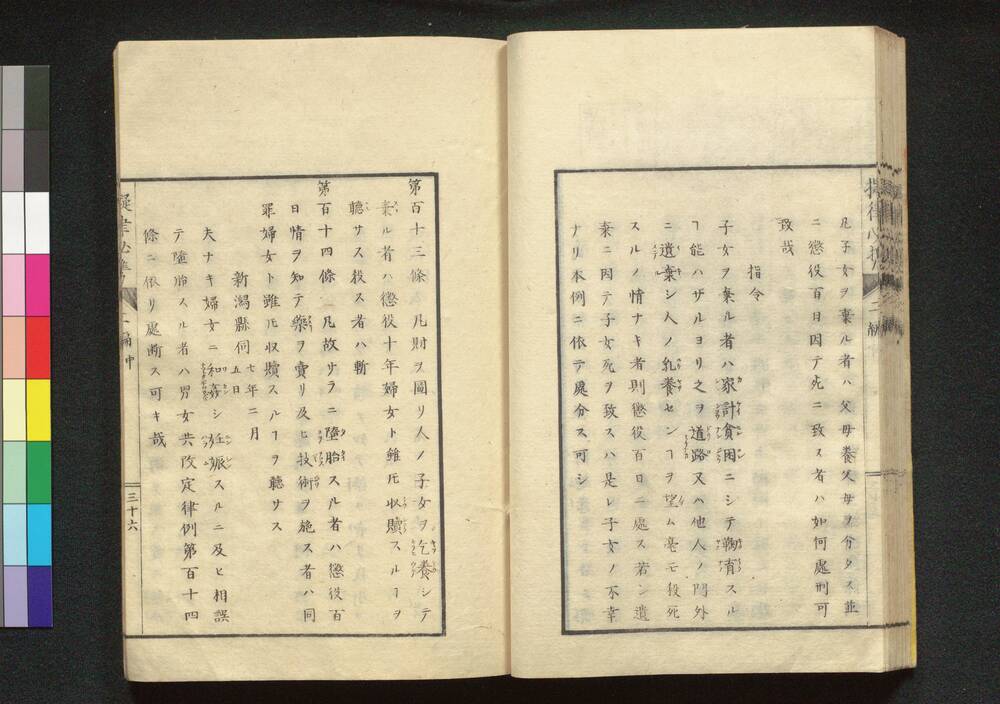 凡子女ヲ棄ル者ハ父母養父母ヲ分タス並
ニ懲役百日因テ死ニ致ス者ハ如何處刑可
致哉
指令
子女ヲ棄ル者ハ家計貧困ニシテ鞠育スル
ヿ能ハザルヨリ之ヲ道路又ハ他人ノ門外
ニ遺棄シ人ノ乳養センヿヲ望ム毫モ殺死
スルノ情ナキ者則懲役百日ニ處ス若シ遺
棄ニ因テ子女死ヲ致スハ是レ子女ノ不幸
ナリ本例ニ依テ處分ス可シ
第百十三條 凡財ヲ圖リ人ノ子女ヲ乞養シテ
棄ル者ハ懲役十年婦女ト雖𪜈収贖スルヿヲ
聽サス殺ス者ハ斬
第百十四條 凡故サラニ墮胎スル者ハ懲役百
日情ヲ知テ藥ヲ賣リ及ヒ技術ヲ施ス者ハ同
罪婦女ト雖𪜈収贖スルヿヲ聽サス
新潟縣伺 七年二月五日
夫ナキ婦女ニ和姦シ妊娠スルニ及ヒ相誤
テ墮胎スル者ハ男女共改定律例第百十四
條ニ依リ處斷ス可キ哉
二編中
三十六